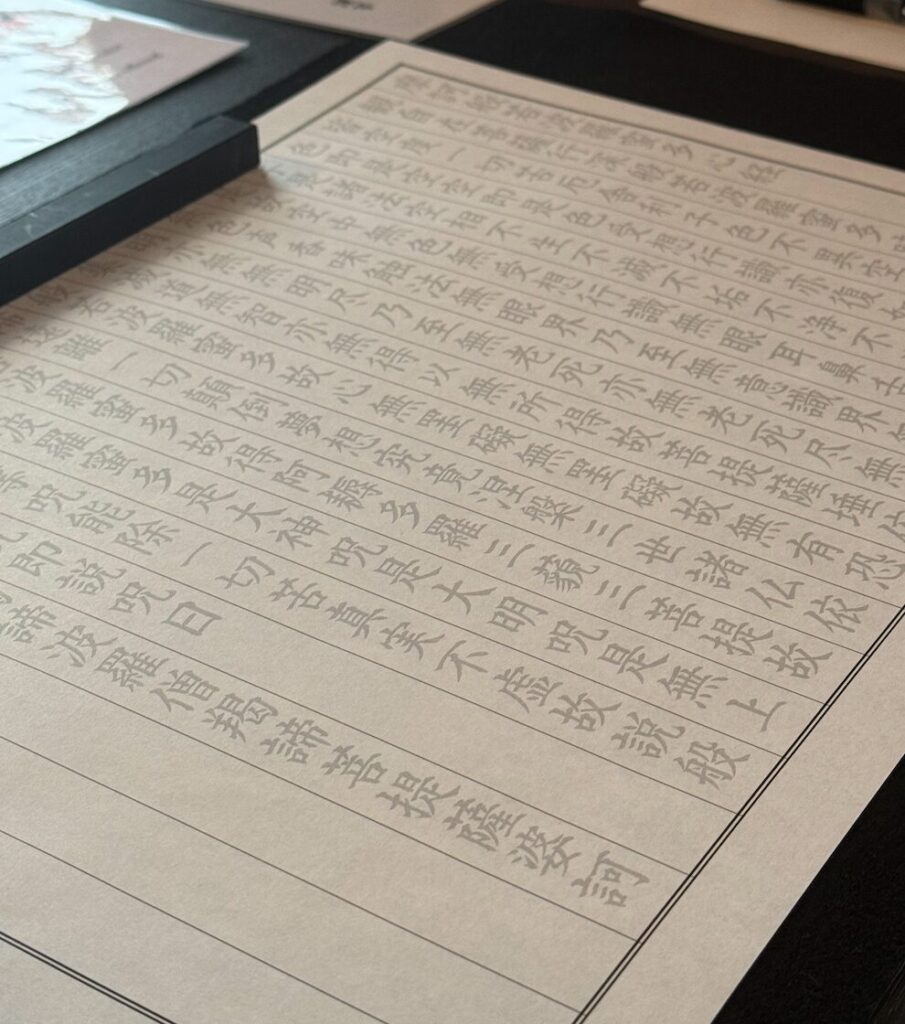 摩訶般若波羅蜜多心経
観自在菩薩行深般若波羅蜜多時
皆空度一切苦厄舎利子色不異空
色即是空空即是色受想行識亦復如
是諸法空相不生不滅不垢不浄不
空中無色無受想行識無眼耳鼻舌
色声香味触法無眼界乃至無意識界無
亦無無明尽乃至無老死亦無老死尽無
道無智亦無得以無所得故菩提薩埵依
若波羅蜜多故心無罣礙無罣礙故無有恐
遠離一切顛倒夢想究竟涅槃三世諸仏依
波羅蜜多故得阿耨多羅三藐三菩提故
波羅蜜多是大神呪是大明呪是無上
等呪能除一切苦真実不虚故説般
即説呪曰
諦波羅僧羯諦菩提薩婆訶